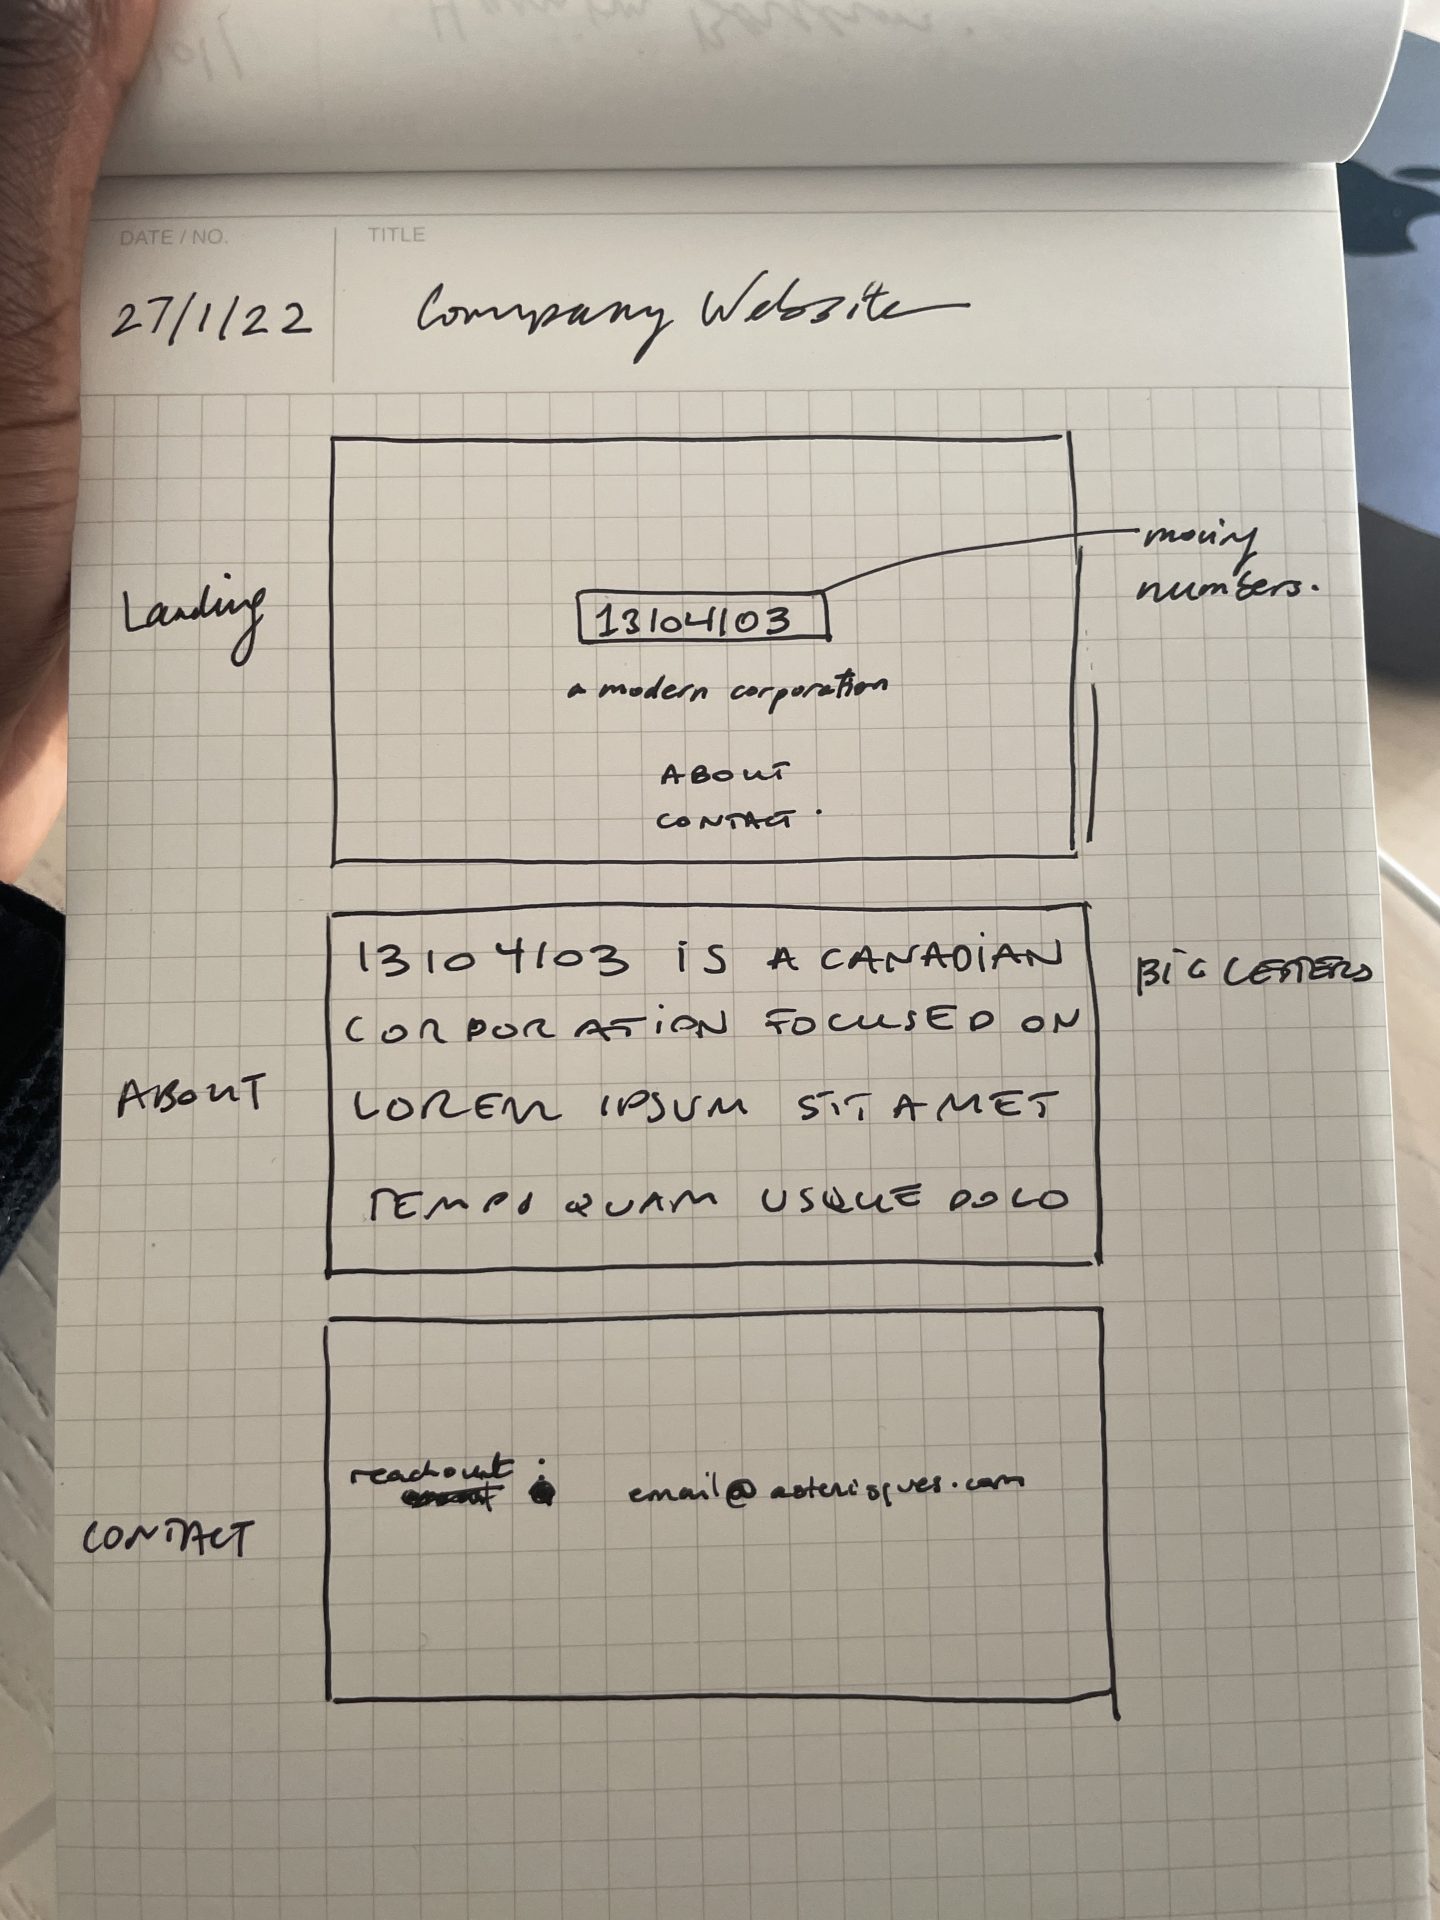 DATE / NO.
TITLE
27/1/22
Company Website
Landing
moving
numbers.
13104103
a modern corporation
ABOUT
CONTACT.
ABOUT
13104103 IS A CANADIAN
CORPORATION FOCUSED ON
LOREM IPSUM SIT AMET
TEMPO QUAM USQUE DOLO
BIG LETTERS
CONTACT
reachout :
email@asterisques.com